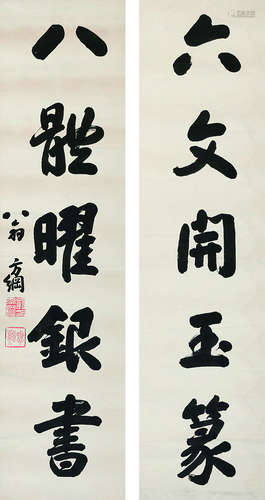 六文開玉篆
八體曜銀書
翁方綱